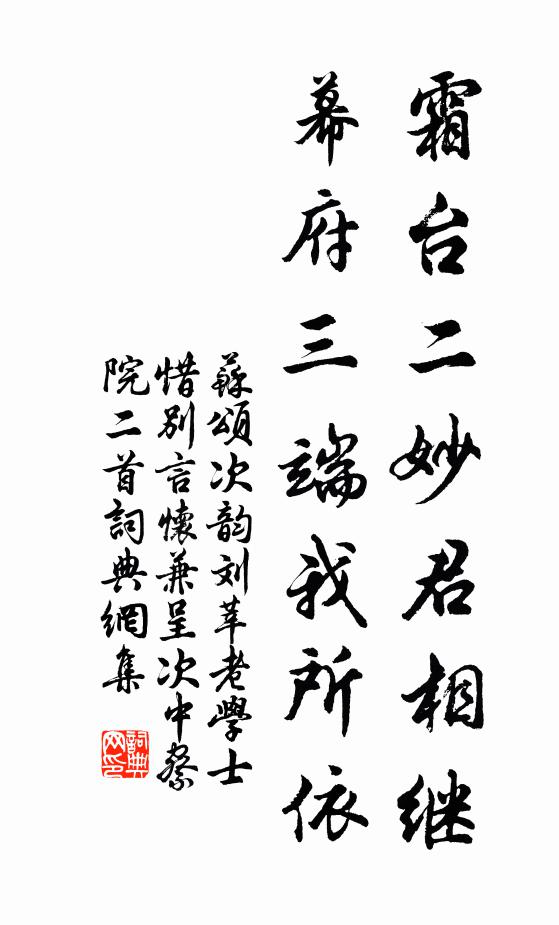 霜台二妙君相继
幕府三端我所依
蘇頌次韵刘莘老學士
惜别言懷兼呈次中察
院二首詞典網集
詞典网印